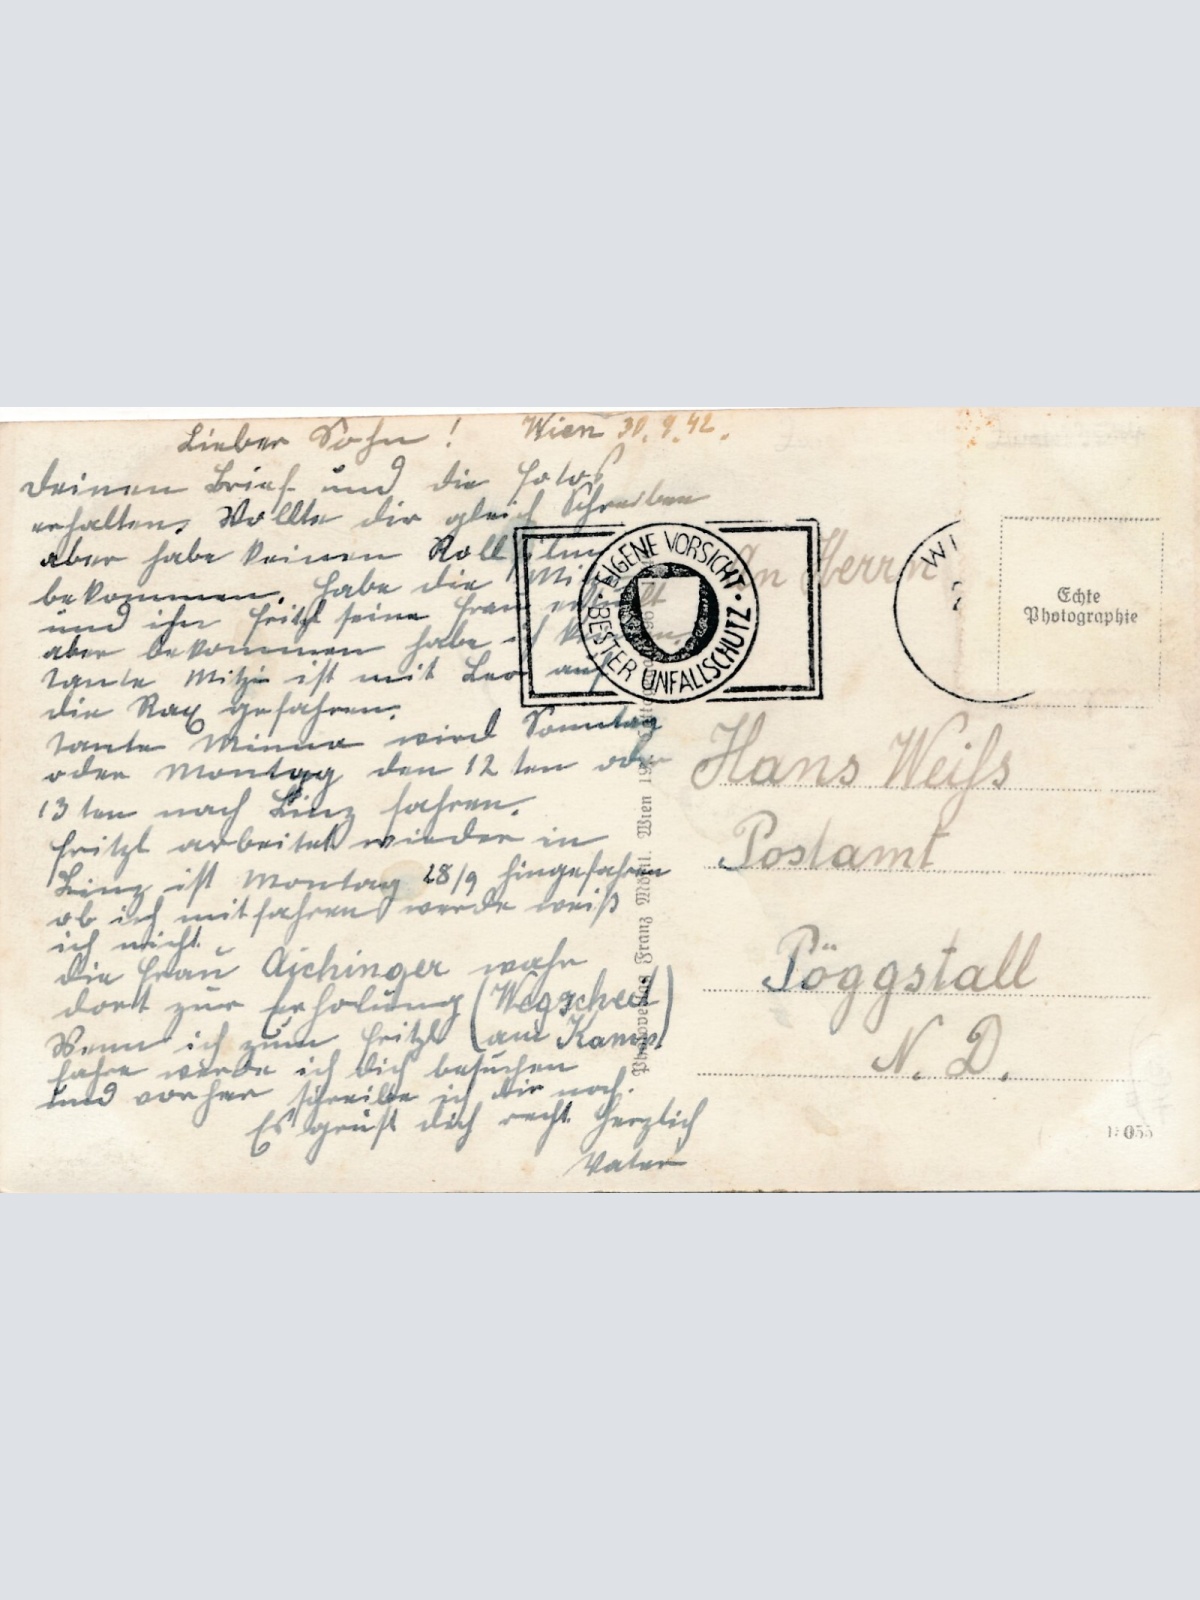 Lieber Sohn! Wien 30.9.42.
Deinen Brief und die Fotos
erhalten, Wollte dir gleich Schreiben
aber habe keinen Rollfilm
bekommen. habe die
und ihn Fritzl seine Frau
aber bekommen habe
Tante Mitzi ist mit Leo auf
die Rax gefahren.
Tante Minna wird Sonntag
oder Montag den 12 ten oder
13 ten nach Linz fahren.
Fritzl arbeitet wieder in
Linz ist Montag 28/9 hingefahren
ob ich mitfahren werde weiß
ich nicht.
die Frau Aichinger wahr
dort zur Erholung (Wegscheid
Wenn ich zum Fritzl am Kamp)
fahre werde ich dich besuchen
und vorher schreibe ich dir noch.
Es grüßt dich recht herzlich
Vater
EIGENE VORSICHT · BESTER UNFALLSCHUTZ ·
WI
Echte
Photographie
Herrn
Hans Weiss
Postamt
Pöggstall
N. D.
Franz Mörtl. Wien
055